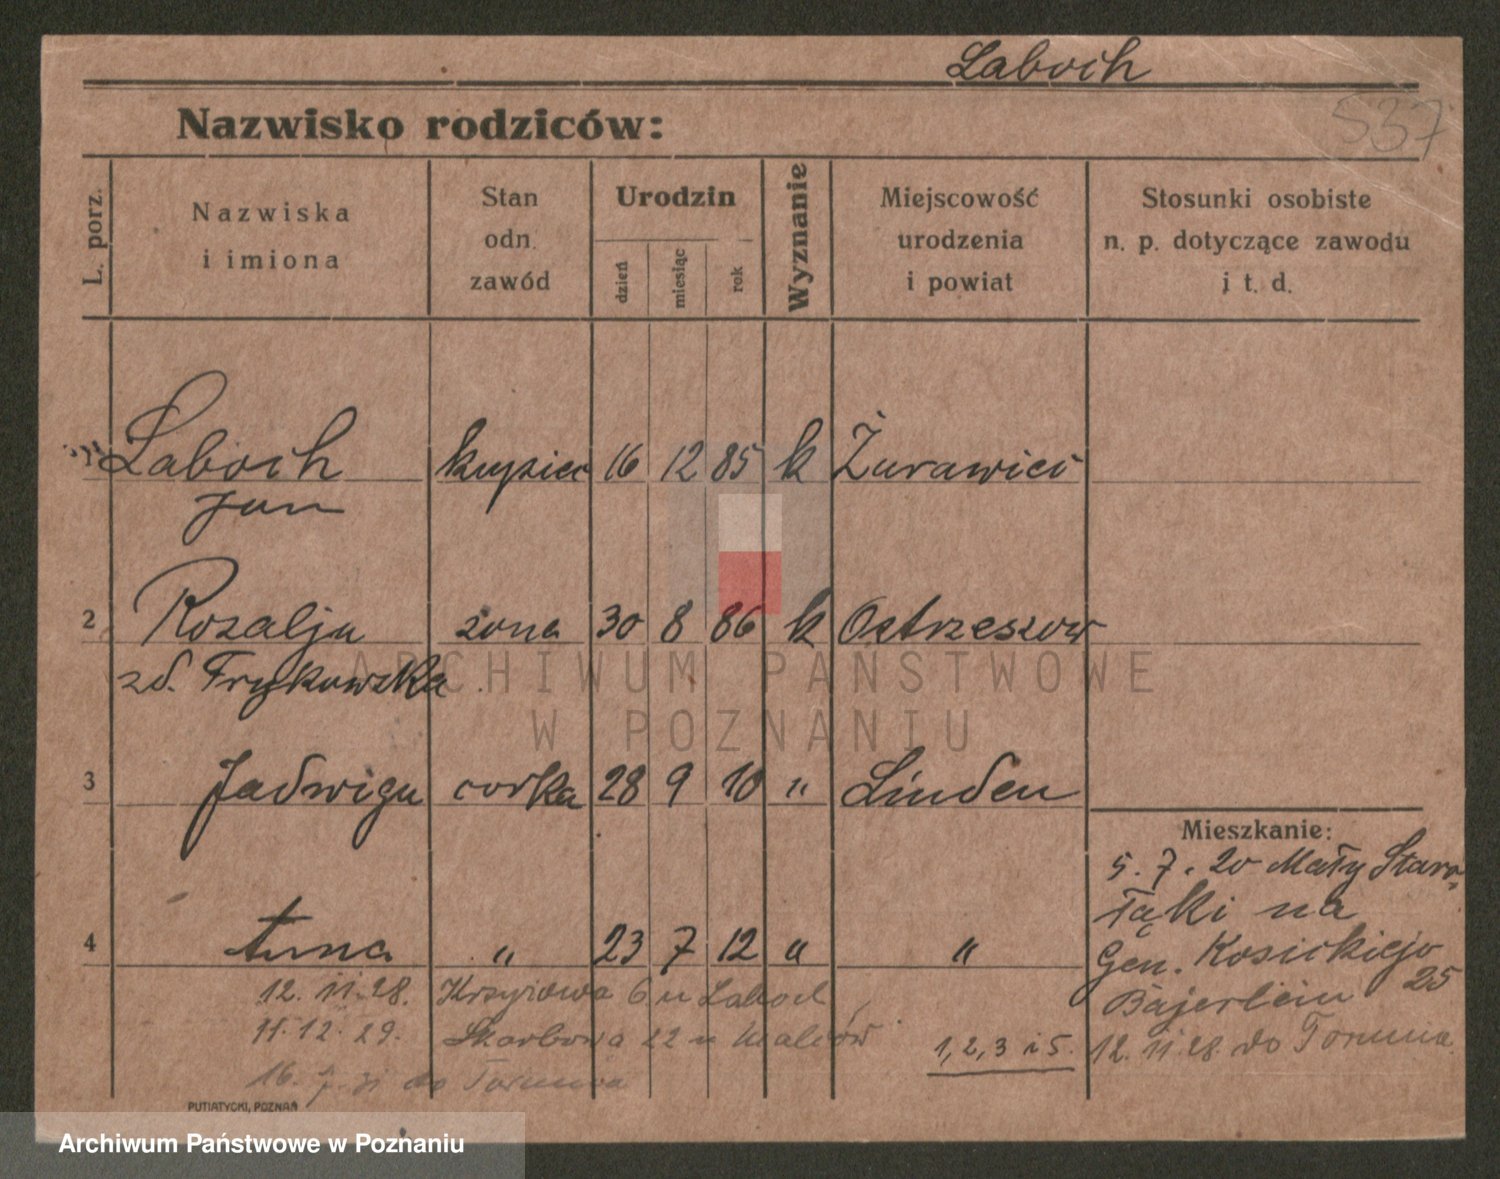 Laboch
537
Nazwisko rodziców:
L. porz.
Nazwiska
i imiona
Stan
odn.
zawód
Urodzin
dzień
miesiąc
rok
Wyznanie
Miejscowość
urodzenia
i powiat
Stosunki osobiste
n. p. dotyczące zawodu
i t. d.
Laboch kupiec 16 12 85 k Żurawici
Jan
2 Rozalja żona 30 8 86 k Ostrzeszow
zd. Frykowska
ARCHIWUM PAŃSTWOWE
W POZNANIU
3 Jadwiga corka 28 9 10 " Linden
Mieszkanie:
5. 7. 20 Mały Staro-
łąki na
4 Anna " 23 7 12 " "
Gen. Kosickiego
25
12. 11. 28. Krzyżowa 6 u Laboch
Bajerlein
11. 12. 29. Skarbowa 22 u
1, 2, 3 i 5.
12. 11. 28. do Torunia
16. 7. 31 do Torunia
PUTIATYCKI, POZNAŃ
Archiwum Państwowe w Poznaniu